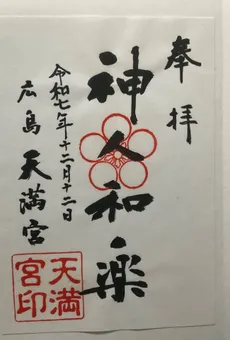 奉拝
神人和楽
令和七年十二月十二日
広島天満宮
天満
宮印